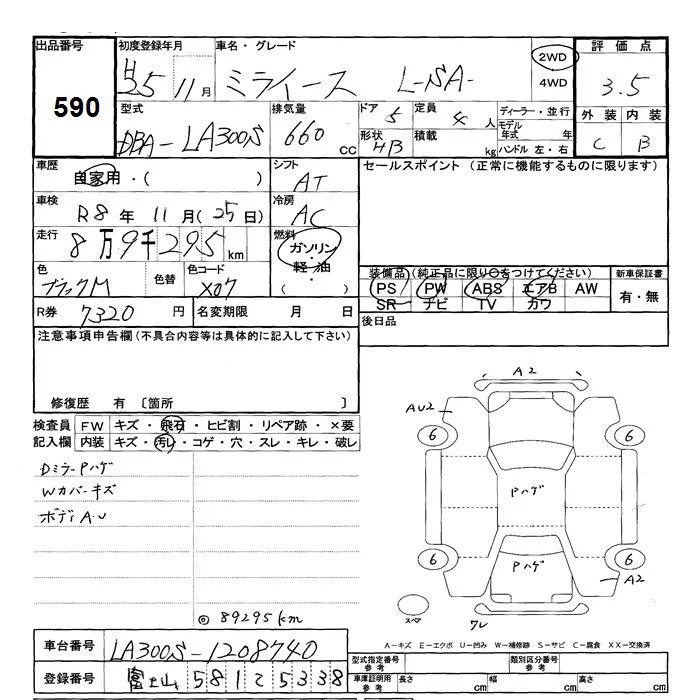 出品番号
590
初度登録年月
H25 11月
車名・グレード
ミライース L-SA-
2WD
4WD
評価点
3.5
外装 内装
C B
型式
DBA-LA300S
排気量
660 cc
ドア 5
定員 4 人
形状 HB
積載 kg
ディーラー・並行
モデル年式 年
ハンドル 左・右
車歴
自家用・( )
シフト
AT
セールスポイント (正常に機能するものに限ります)
車検
R8年 11月(25日)
冷房
AC
走行
8万9千295km
燃料
ガソリン
・
軽油
( )
色
ブラックM
色替
色コード
X07
装備品(純正品に限り○をつけてください)
PS PW ABS エアB AW
SR ナビ TV カワ
新車保証書
有・無
R券 7320 円
名変期限 月 日
後日品
注意事項申告欄(不具合内容等は具体的に記入して下さい)
修復歴 有 〔箇所 〕
検査員記入欄
FW キズ・飛石・ヒビ割・リペア跡・×要
内装 キズ・汚レ・コゲ・穴・スレ・キレ・破レ
DミラーPハゲ
Wカバーキズ
ボディA.U
◎89295km
A2
AU2
6 6
Pハゲ
Pハゲ
6 6
A2
スペア
ワレ
A-キズ E-エクボ U-凹み W-補修跡 S-サビ C-腐食 XX-交換済
車台番号
LA300S-1208740
登録番号
富士山 581 こ 5338
型式指定番号
参考
類別区分番号
参考
車庫証明用
参考
長さ cm
幅 cm
高さ cm